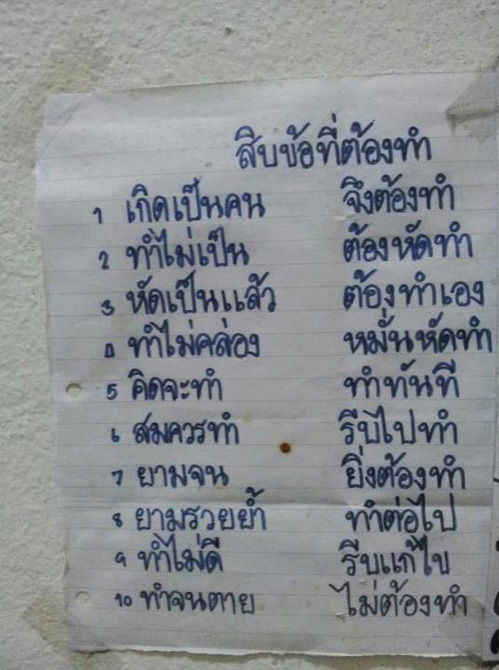 สิบข้อที่ต้องทำ
1 เกิดเป็นคน จึงต้องทำ
2 ทำไม่เป็น ต้องหัดทำ
3 หัดเป็นแล้ว ต้องทำเอง
4 ทำไม่คล่อง หมั่นหัดทำ
5 คิดจะทำ ทำทันที
6 สมควรทำ รีบไปทำ
7 ยามจน ยิ่งต้องทำ
8 ยามรวยย้ำ ทำต่อไป
9 ทำไม่ดี รีบแก้ไข
10 ทำจนตาย ไม่ต้องทำ